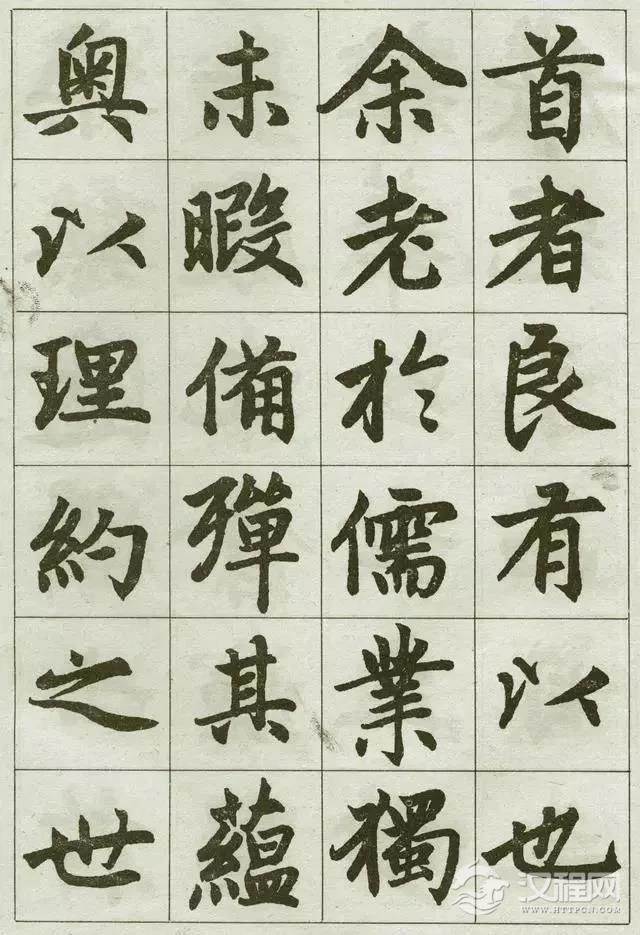 首者良有以也
余老於儒業獨
未暇備殫其蘊
奧以理約之世
汉程网
WWW.HTTPCN.COM